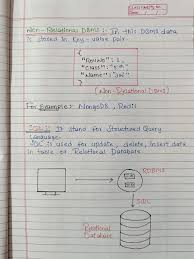 Non-Relational DBMS: In this DBMS data
is stored in Key-value pair
{
"RollNo": 1,
"Class":
"Name":
}
(Non-Relational DBMS)
For Example: MongoDB, Redis
SQL: It stand for Structured Query
Language.
SQL is used for update, delete, Insert data
in table or Relational Database
RDBMS
SQL
Relational
Database